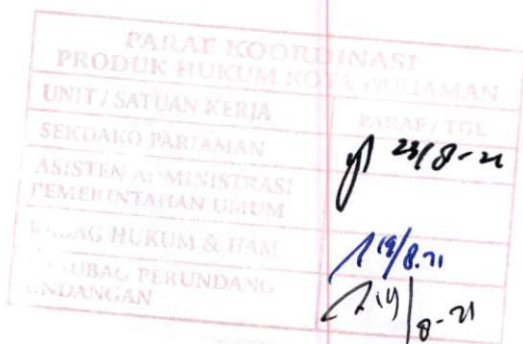 PARAF KOORDINASI
PRODUK HUKUM KOTA PARIAMAN
UNIT / SATUAN KERJA PARAF / TGL
SEKDAKO PARIAMAN 23/8-21
ASISTEN ADMINISTRASI
PEMERINTAHAN UMUM
KABAG HUKUM & HAM 19/8.21
KASUBAG PERUNDANG
UNDANGAN 19/8-21